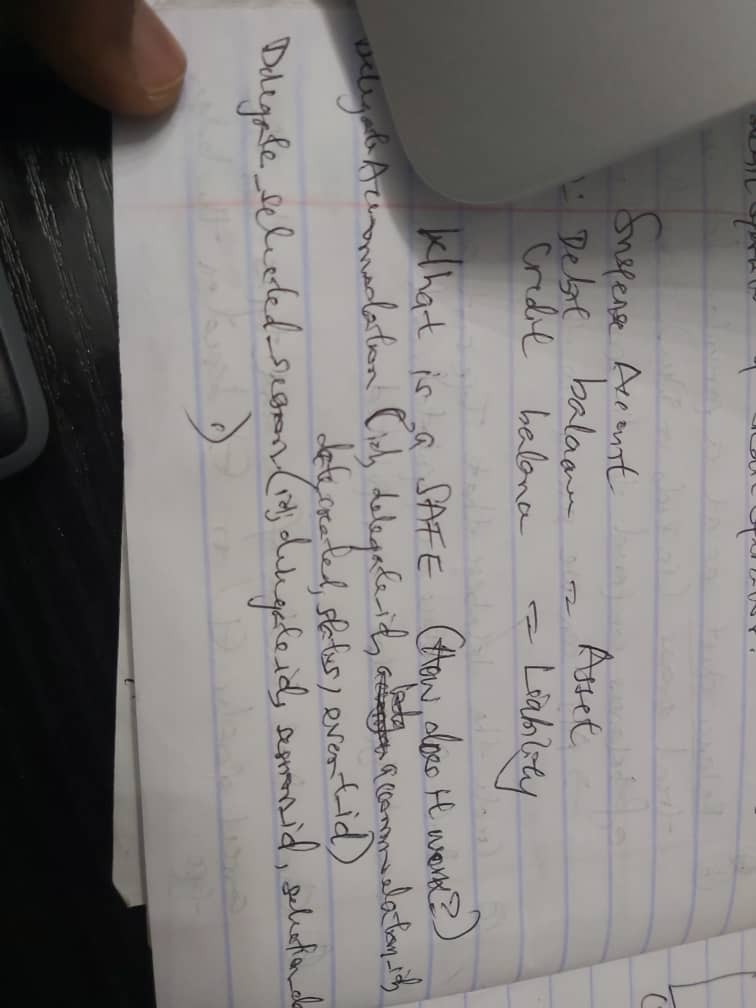 Suspense Account
: Debit balance = Asset
Credit balance = Liability
What is a SAFE (How does it work?)
Delegate Accommodation (id, delegate_id, accommodation_id,
datecreated, status, event_id)
Delegate_selected_session (id, delegate_id, session_id,
)